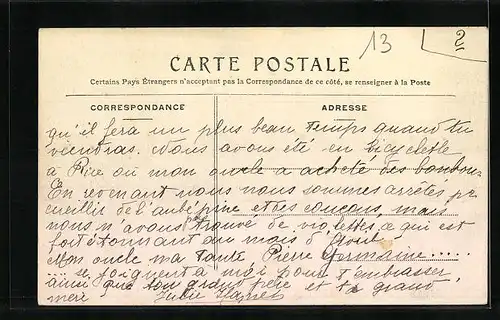 13
2
CARTE POSTALE
Certains Pays Étrangers n'acceptant pas la Correspondance de ce côté, se renseigner à la Poste
CORRESPONDANCE
ADRESSE
qu'il fera un plus beau temps quand tu
viendras. Nous avons été en bicyclette
à où mon oncle a acheté des bonbons
En revenant nous nous sommes arrêtés
cueillir de l'aubépine et des coucous, mais
nous n'avons pas trouvé de violettes, ce qui est
fort étonnant au mois d'Avril.
Mon oncle ma tante Pierre Germaine .....
..... se joignent à moi pour t'embrasser
ainsi que ton grand père et ta grand
mère